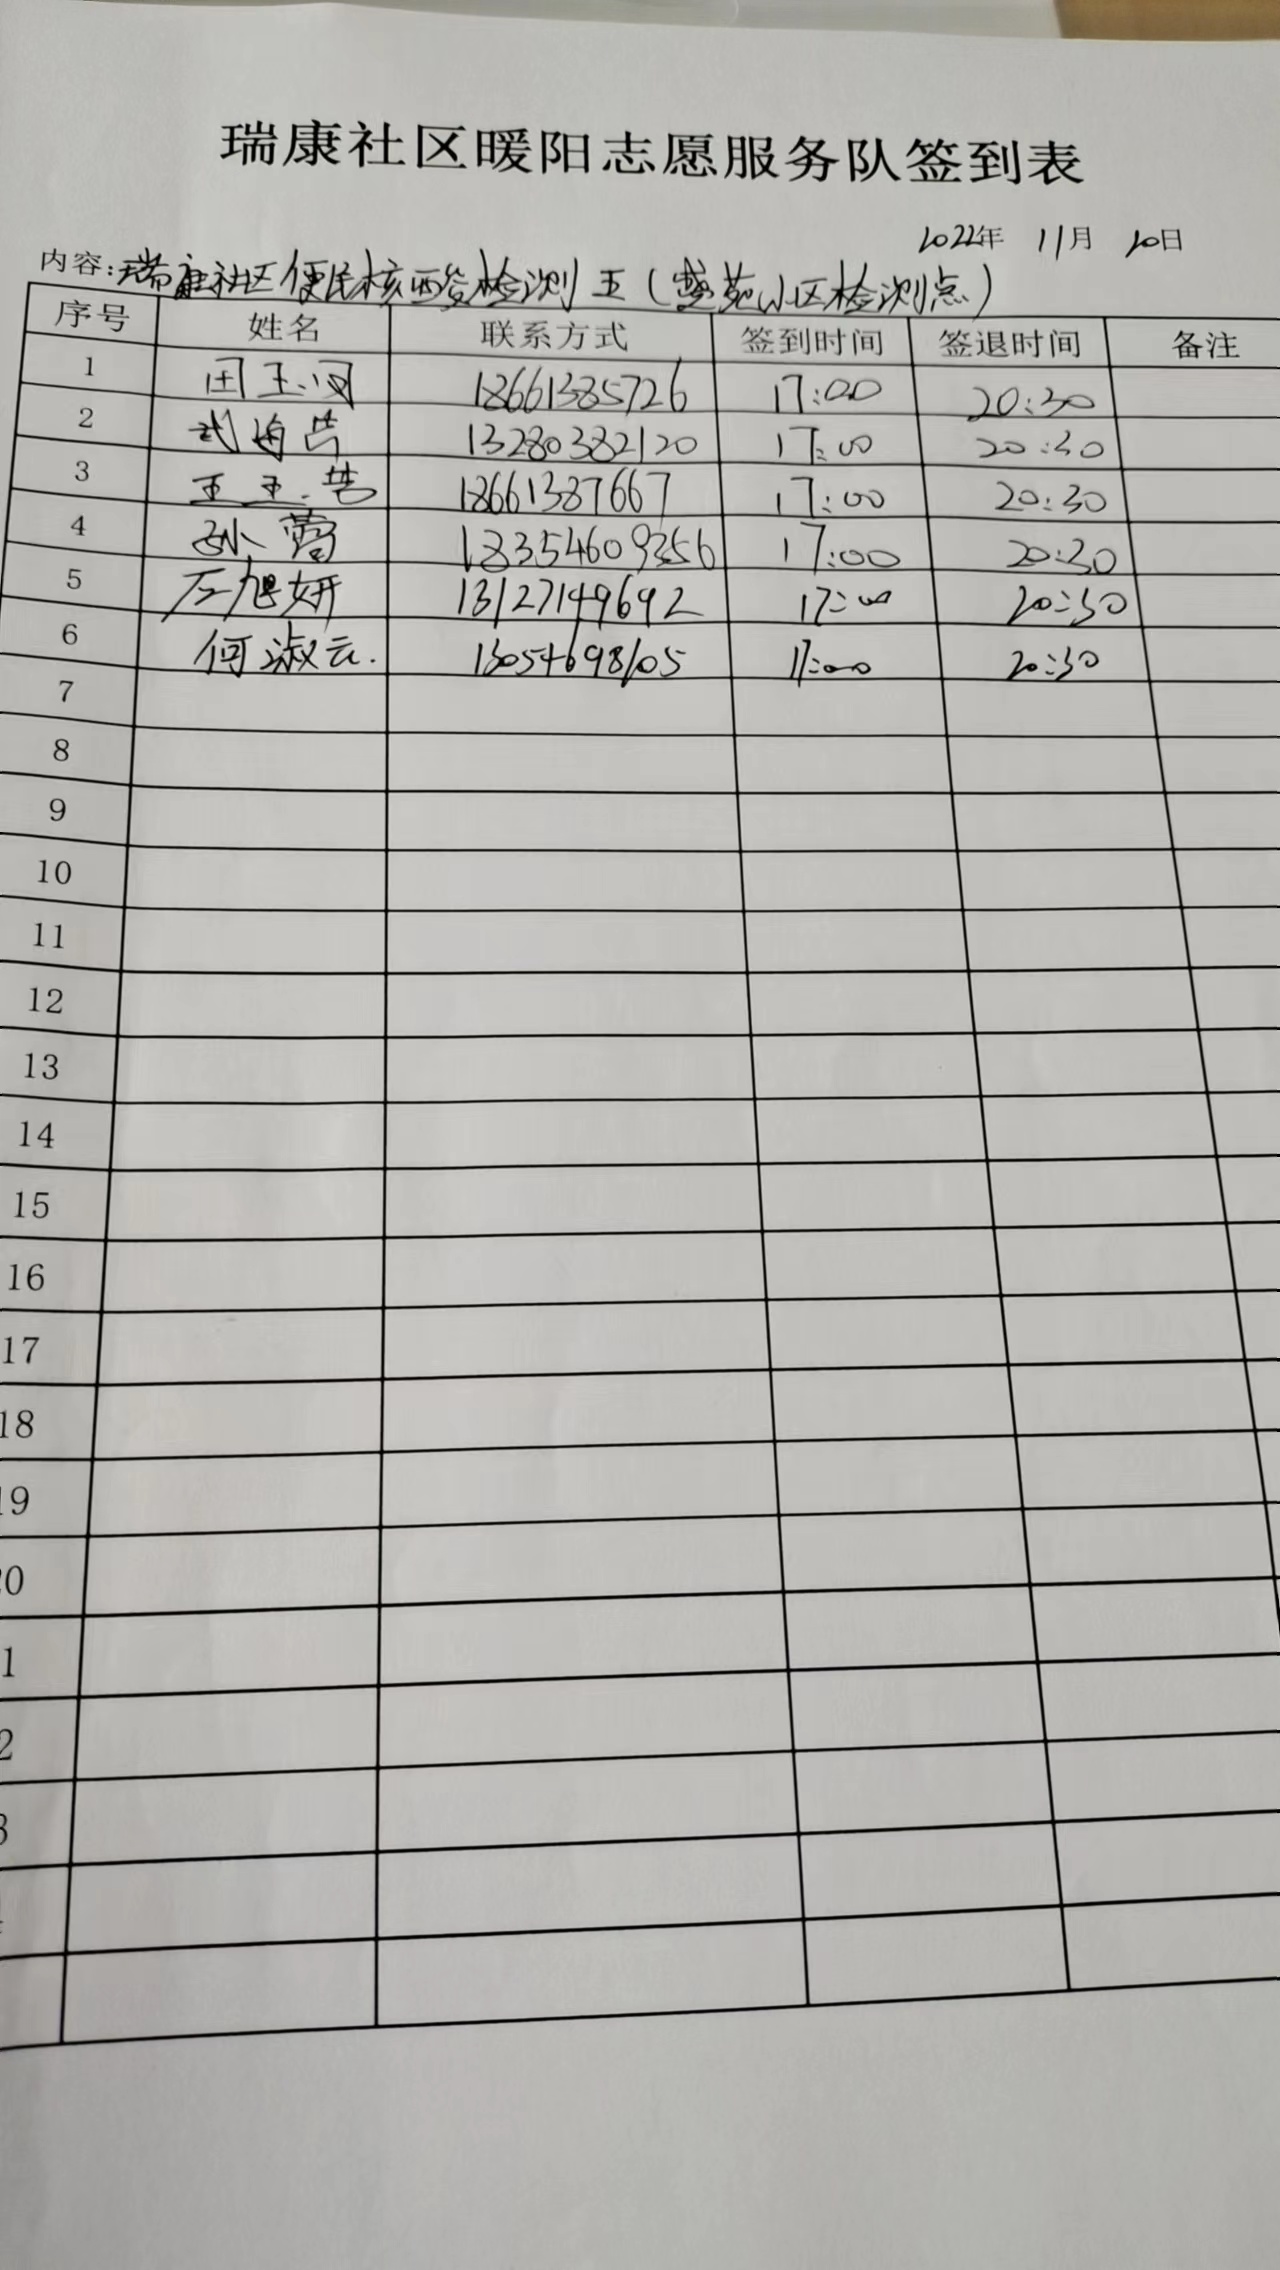 瑞康社区暖阳志愿服务队签到表
2022年 11月 20日
内容:瑞康社区便民核酸检测五(盛苑小区检测点)
序号 姓名 联系方式 签到时间 签退时间 备注
1 田玉 18661385726 17:00 20:30
2 武海 13280382120 17:00 20:30
3 王玉 18661387667 17:00 20:30
4 孙 18354609356 17:00 20:30
5 左旭妍 13127149692 17:00 20:30
6 何淑云. 13054698105 17:00 20:30
7
8
9
10
11
12
13
14
15
16
17
18
19
20
1
2
3